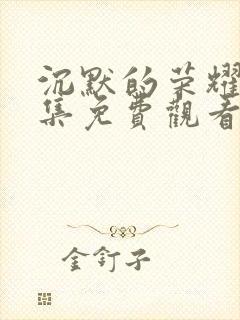 沉默的荣耀
集免費觀看
金釘子